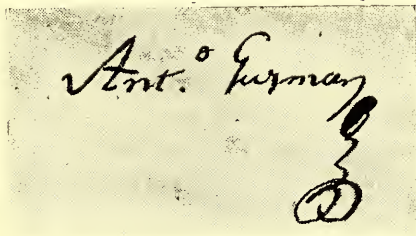 Ant.º Guzman